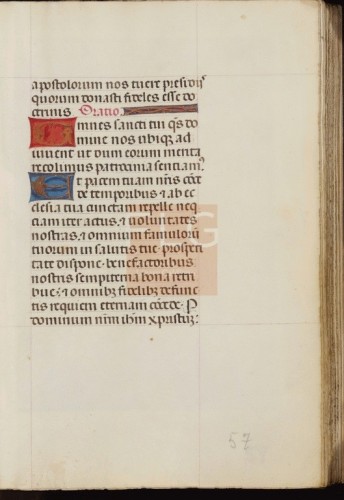 apostolorum nos tuere presidiis
quorum donasti fideles esse do
ctrinis Oratio
Omnes sancti tui qs do
mine nos ubique ad
iuvent ut dum eorum merita
recolimus patrocinia sentiamꝰ
Et pacem tuam nris cōce
de temporibus & ab ec
clesia tua cunctam repelle neq
tiam iter actus & uoluntates
nostras & omnium famulorū
tuorum in salutis tue prosperi
tate dispone benefactoribus
nostris sempiterna bona retri
bue & omnibꝫ fidelibꝫ defunc
tis requiem eternam cōcede. P
dominum nrm ihm xpm
57